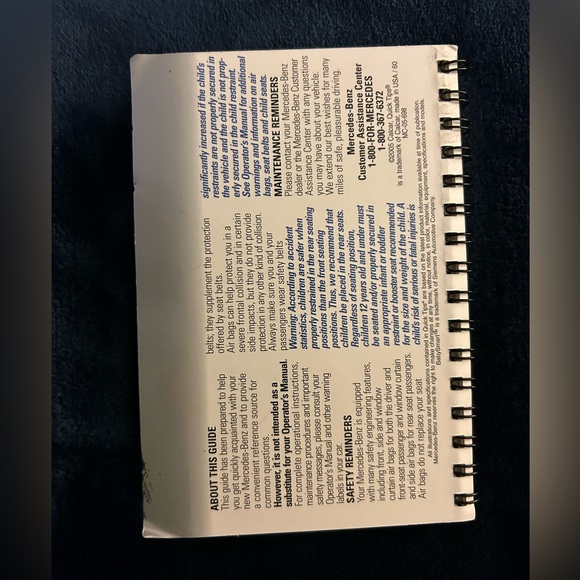 ABOUT THIS GUIDE
This guide has been prepared to help
you get quickly acquainted with your
new Mercedes-Benz and to provide
a convenient reference source for
common questions.
However, it is not intended as a
substitute for your Operator's Manual.
For complete operational instructions,
maintenance procedures and important
safety messages, please consult your
Operator's Manual and other warning
labels in your car.
SAFETY REMINDERS
Your Mercedes-Benz is equipped
with many safety engineering features,
including front, side and window
curtain air bags for both the driver and
front-seat passenger and window curtain
and side air bags for rear seat passengers.
Air bags do not replace your seat
belts; they supplement the protection
offered by seat belts.
Air bags can help protect you in a
severe frontal collision and in certain
side impacts, but they do not provide
protection in any other kind of collision.
Always make sure you and your
passengers wear safety belts
Warning: According to accident
statistics, children are safer when
properly restrained in the rear seating
positions than the front seating
positions. Thus, we recommend that
children be placed in the rear seats.
Regardless of seating position,
children 12 years old and under must
be seated and/or properly secured in
an appropriate infant or toddler
restraint or booster seat recommended
for the size and weight of the child. A
child's risk of serious or fatal injuries is
significantly increased if the child's
restraints are not properly secured in
the vehicle and the child is not prop-
erly secured in the child restraint.
See Operator's Manual for additional
warnings and information on air
bags, seat belts and child seats.
MAINTENANCE REMINDERS
Please contact your Mercedes-Benz
dealer or the Mercedes-Benz Customer
Assistance Center with any questions
you may have about your vehicle.
We extend our best wishes for many
miles of safe, pleasurable driving.
Mercedes-Benz
Customer Assistance Center
1-800-FOR-MERCEDES
1-800-367-6372
©2005 Calcar. Quick Tips®
is a trademark of Calcar, made in USA / 60
MC-05-698
All illustrations and specifications contained in Quick Tips® are based on the latest product information available at time of publication.
Mercedes-Benz reserves the right to make changes at any time, without notice, in color, material, equipment, specifications and models.
BabySmart™ is a trademark of Siemens Automotive Company.